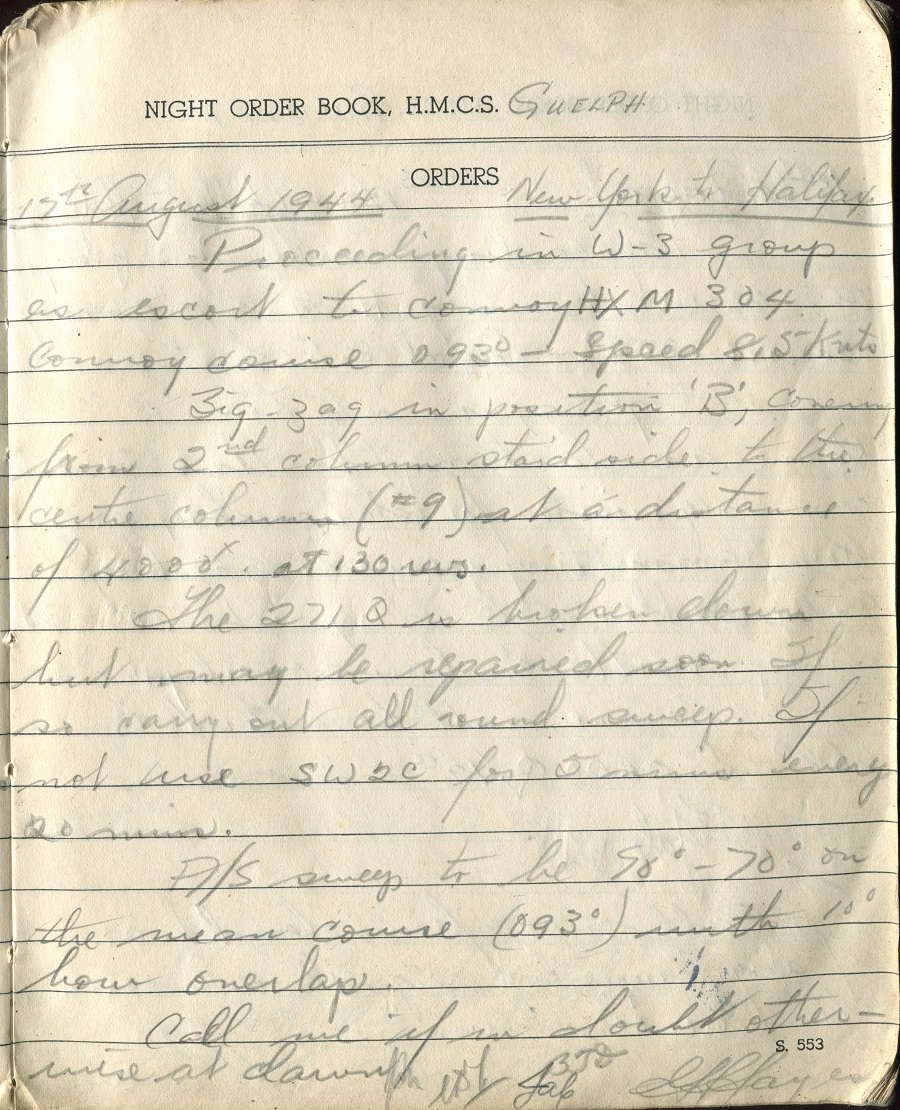 NIGHT ORDER BOOK, H.M.C.S. GUELPH
ORDERS
17th August 1944 New York to Halifax.
Proceeding in W-3 group
as escort to convoy HXM 304
Convoy course 093° - Speed 8.5 Knts
Zig-zag in position 'B', covering
from 2nd column starb side to the
centre column (#9) at a distance
of 4000x. at 130 revs.
The 271 Q is broken down
but may be repaired soon. If
so carry out all round sweep. If
not use SW2C for 5 mins every
20 mins.
A/S sweep to be 90° - 70° on
the mean course (093°) with 10°
bow overlap.
Call me if in doubt other-
wise at dawn
S. 553